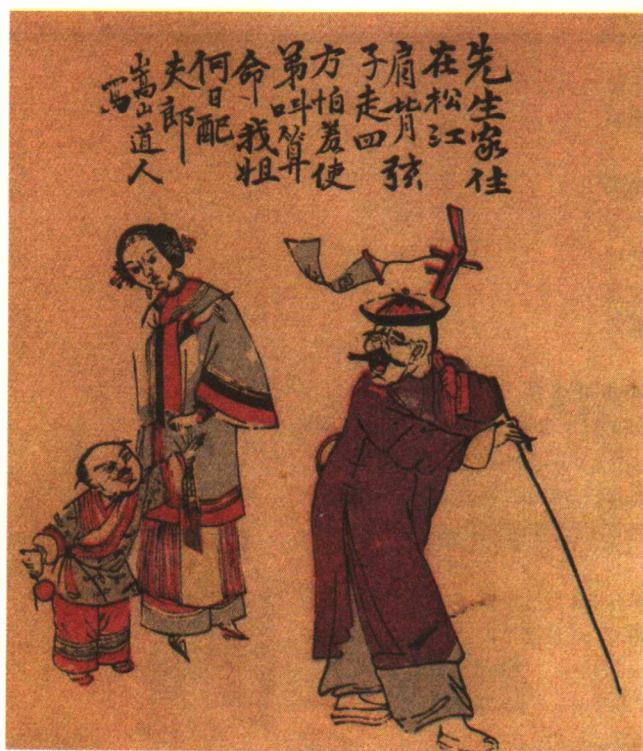 先生家住
在松江
肩背弦
子走四
方怕羞使
弟叫算
命我姐
何日配
夫郎
嵩山道人
写